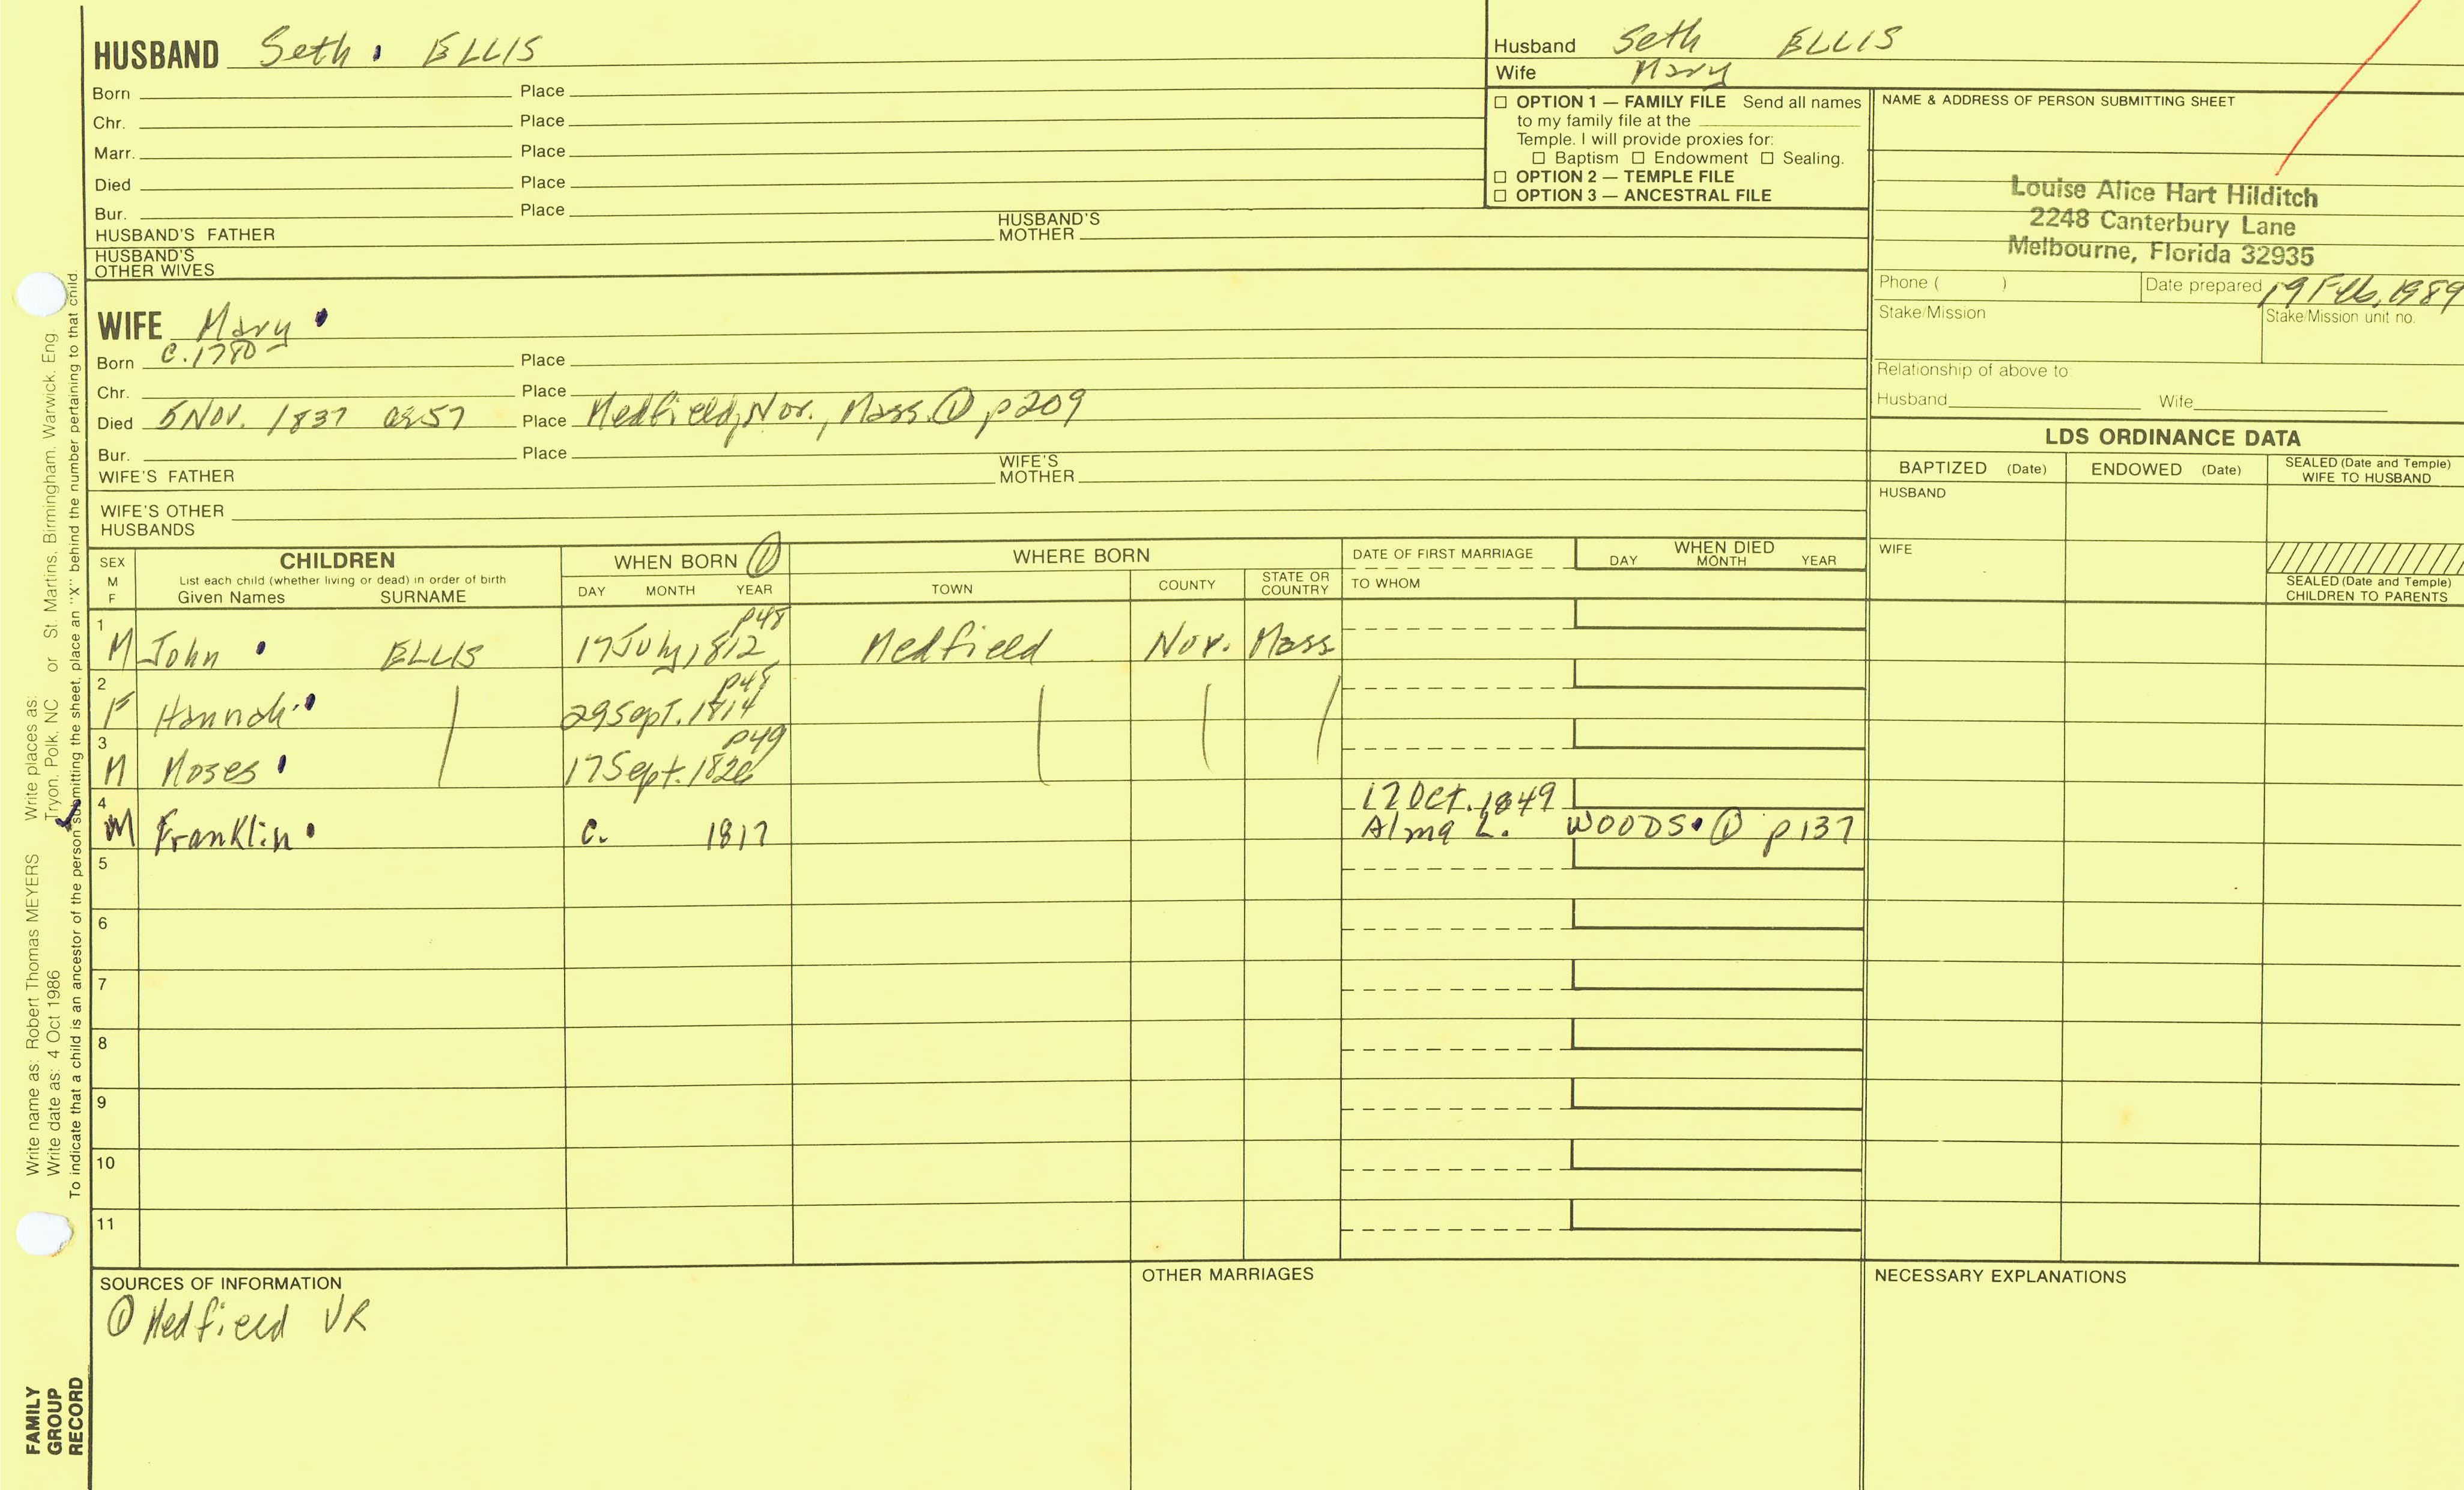 HUSBAND Seth ELLIS
Born Place
Chr. Place
Marr. Place
Died Place
Bur. Place
HUSBAND'S FATHER HUSBAND'S MOTHER
HUSBAND'S OTHER WIVES
Husband Seth ELLIS
Wife Mary
☐ OPTION 1 — FAMILY FILE Send all names
to my family file at the
Temple. I will provide proxies for:
☐ Baptism ☐ Endowment ☐ Sealing.
☐ OPTION 2 — TEMPLE FILE
☐ OPTION 3 — ANCESTRAL FILE
NAME & ADDRESS OF PERSON SUBMITTING SHEET
Louise Alice Hart Hilditch
2248 Canterbury Lane
Melbourne, Florida 32935
Phone ( ) Date prepared 19 Feb, 1989
Stake/Mission Stake/Mission unit no.
Relationship of above to
Husband Wife
WIFE Mary
Born c. 1780 Place
Chr. Place
Died 5 Nov. 1837 ae57 Place Medfield, Nor., Mass. ① p209
Bur. Place
WIFE'S FATHER WIFE'S MOTHER
WIFE'S OTHER HUSBANDS
LDS ORDINANCE DATA
BAPTIZED (Date) ENDOWED (Date) SEALED (Date and Temple) WIFE TO HUSBAND
HUSBAND
WIFE
SEALED (Date and Temple) CHILDREN TO PARENTS
SEX M F CHILDREN WHEN BORN ① WHERE BORN DATE OF FIRST MARRIAGE WHEN DIED
List each child (whether living or dead) in order of birth
Given Names SURNAME DAY MONTH YEAR TOWN COUNTY STATE OR COUNTRY TO WHOM DAY MONTH YEAR
1 p48
M John ELLIS 17 July, 1812 Medfield Nor. Mass
2 p48
F Hannah 29 Sept. 1814
3 p49
M Moses 17 Sept. 1826
4 17 Oct. 1849
M Franklin c. 1817 Alma L. WOODS ① p137
5
6
7
8
9
10
11
SOURCES OF INFORMATION
① Medfield VR
OTHER MARRIAGES
NECESSARY EXPLANATIONS
Write name as: Robert Thomas MEYERS Write places as:
Write date as: 4 Oct 1986 Tryon, Polk, NC or St. Martins, Birmingham, Warwick, Eng
To indicate that a child is an ancestor of the person submitting the sheet, place an "X" behind the number pertaining to that child.
FAMILY
GROUP
RECORD